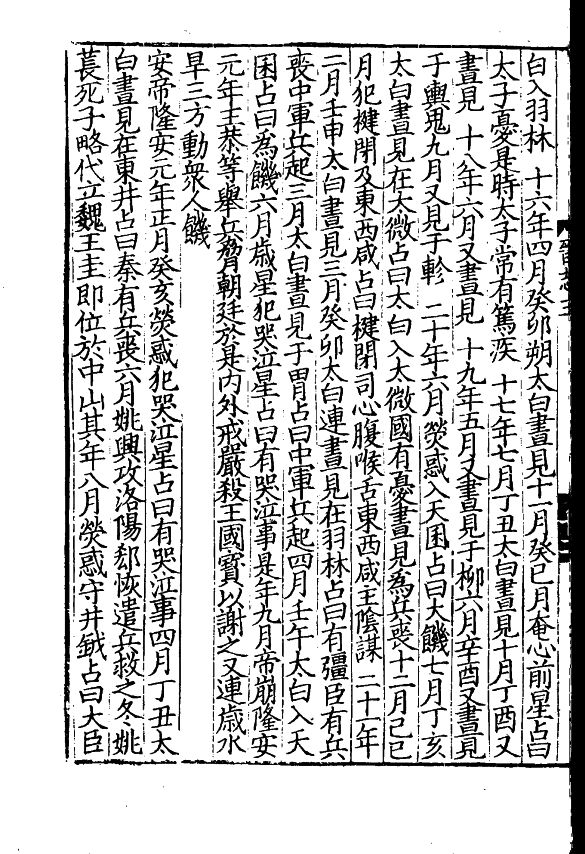 白入羽林　十六年四月癸卯朔太白晝見十一月癸巳月奄心前星占曰
太子憂是時太子常有篤疾　十七年七月丁丑太白晝見十月丁酉又
晝見　十八年六月又晝見　十九年五月又晝見于柳六月辛酉又晝見
于輿鬼九月又見于軫　二十年六月熒惑入天囷占曰大饑七月丁亥
太白晝見在太微占曰太白入太微國有憂晝見為兵喪十二月己巳
月犯楗閉及東西咸占曰楗閉司心腹喉舌東西咸主陰謀　二十一年
二月壬申太白晝見三月癸卯太白連晝見在羽林占曰有彊臣有兵
喪中軍兵起三月太白晝見于胃占曰中軍兵起四月壬午太白入天
囷占曰為饑六月歲星犯哭泣星占曰有哭泣事是年九月帝崩隆安
元年王恭等舉兵脅朝廷於是內外戒嚴殺王國寶以謝之又連歲水
旱三方動衆人饑
安帝隆安元年正月癸亥熒惑犯哭泣星占曰有哭泣事四月丁丑太
白晝見在東井占曰秦有兵喪六月姚興攻洛陽郄恢遣兵救之冬姚
萇死子略代立魏王圭即位於中山其年八月熒惑守井鉞占曰大臣